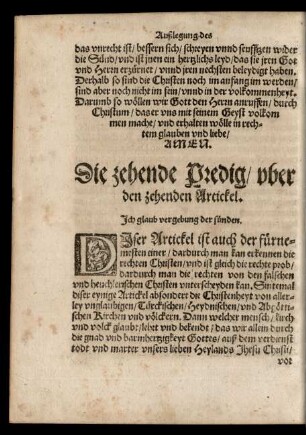 Außlegung des
das vnrecht ist/ bessern sich/ schreyen vnnd seufftzen wider
die Sünd/ vnd ist jnen ein hertzlichs leyd/ das sie jren Got
vnd Herrn erzürnet/ vnnd jren nechsten beleydigt haben.
Derhalb so sind die Christen noch im anfang/ im werden/
sind aber noch nicht im sein/ vnnd in der volkommenheyt.
Darumb so wöllen wir Gott den Herrn anruffen/ durch
Christum/ das er vns mit seinem Geyst volkom
men mache/ vnd erhalten wölle in rech-
tem glauben vnd liebe/
AMEN.
Die zehende Predig/ vber
den zehenden Artickel.
Ich glaub vergebung der sünden.
DIser Artickel ist auch der fürne-
mesten einer/ dardurch man kan erkennen die
rechten Christen/ vnd ist gleich die rechte prob/
dardurch man die rechten von den falschen
vnd heuchlerischen Christen vnterscheyden kan. Sintemal
diser eynige Artickel absondert die Christenheyt von aller-
ley vnglaubigen/ Türckischen/ Heydnischen/ vnd Abgötti-
schen Kirchen vnd völckern. Dann welcher mensch/ kirch
vnd volck glaubt/ lehrt vnd bekendt/ das wir allein durch
die gnad vnd barmhertzigkeyt Gottes/ auß dem verdienst
todt vnd marter vnsers lieben Heylands Jhesu Christi/
vor